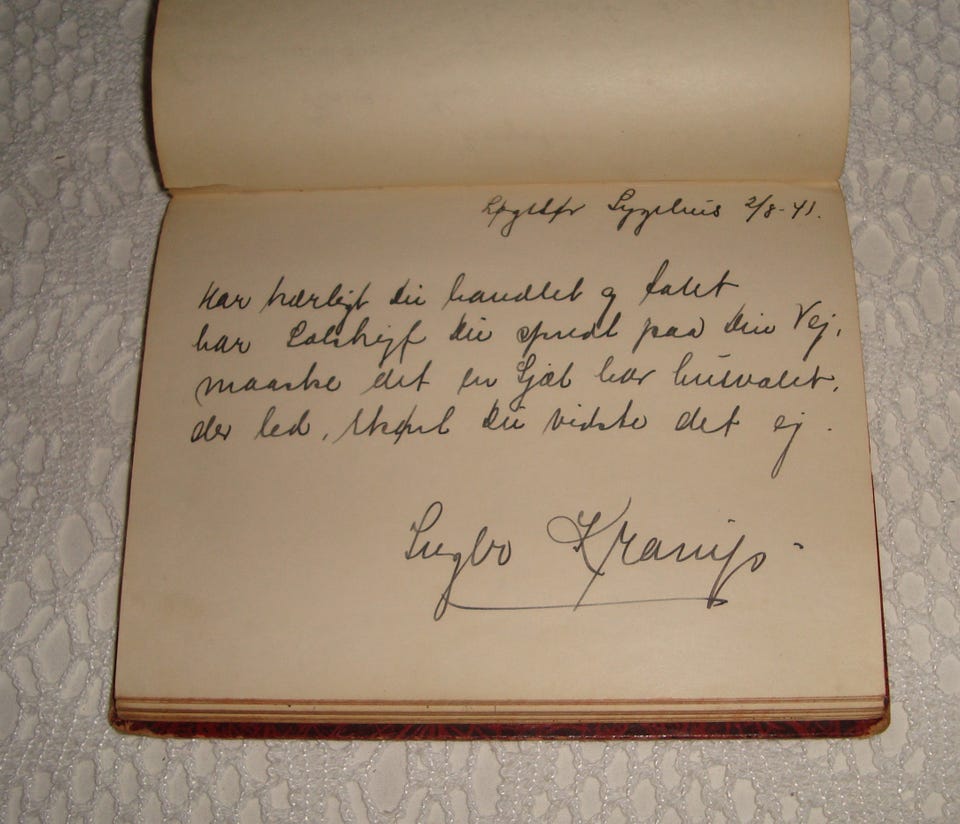 Løgstør Sygehus 2/8-41.
Har kærligt Du handlet og talet
har Solstrejf Du spredt paa Din Vej,
maaske det en Sjæl har husvalet,
der led, skønt Du vidste det ej.
Kramp